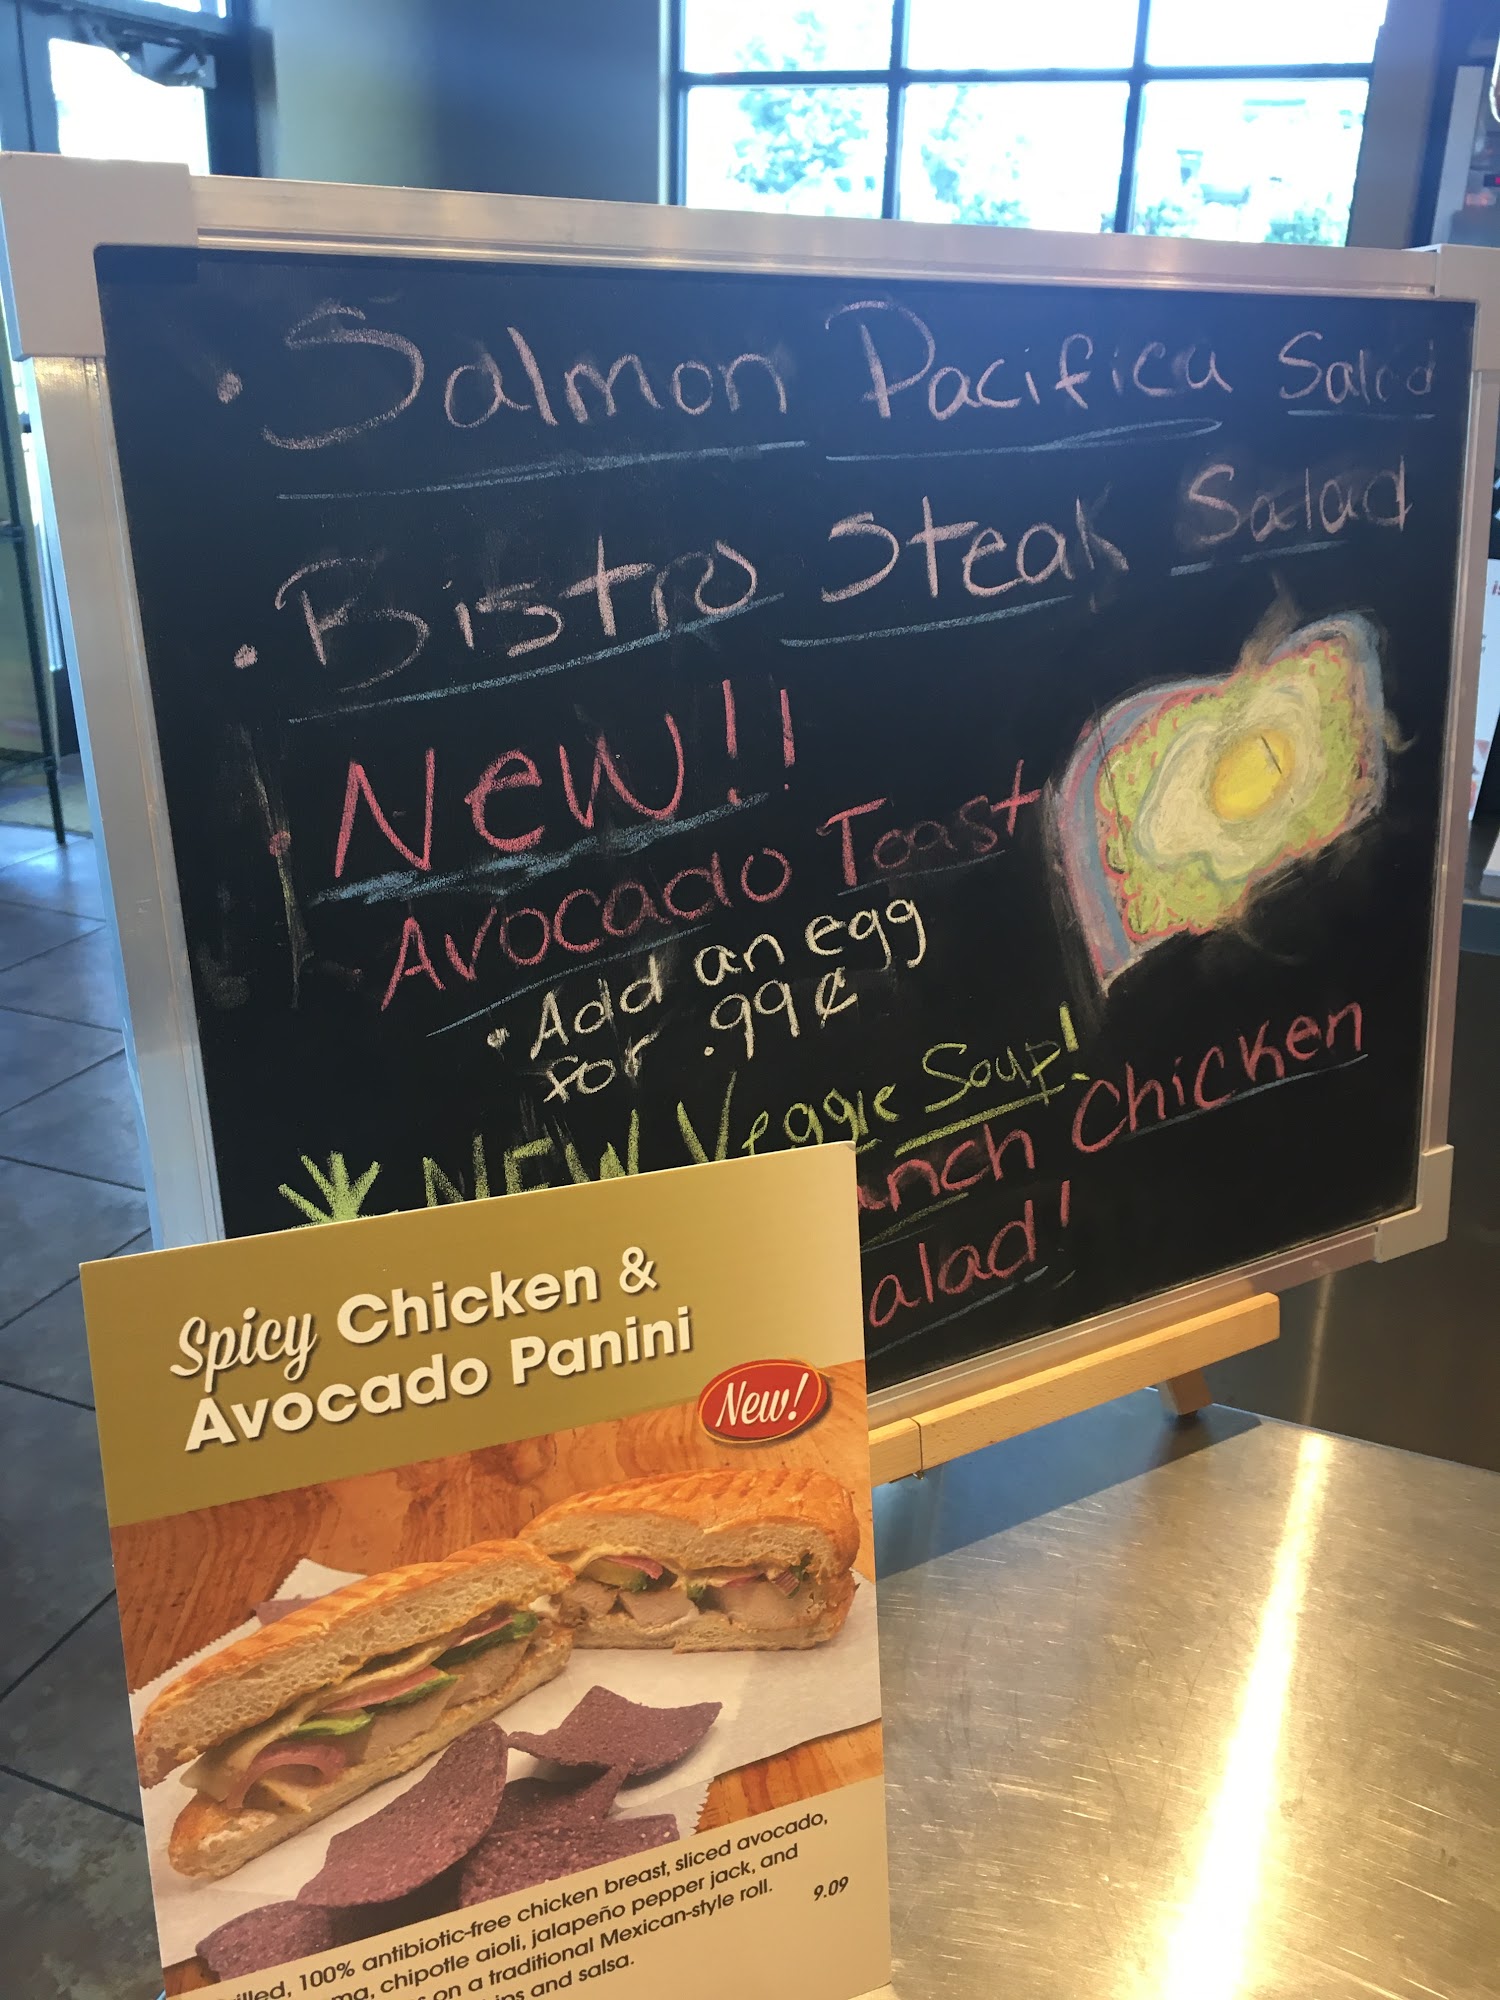 • Salmon Pacifica Salad
• Bistro Steak Salad
• New!!
Avocado Toast
• Add an egg
for .99¢
NEW Veggie Soup!
Chicken
Spicy Chicken &
Avocado Panini
New!
100% antibiotic-free chicken breast, sliced avocado,
chipotle aioli, jalapeño pepper jack, and
on a traditional Mexican-style roll.
9.09
and salsa.